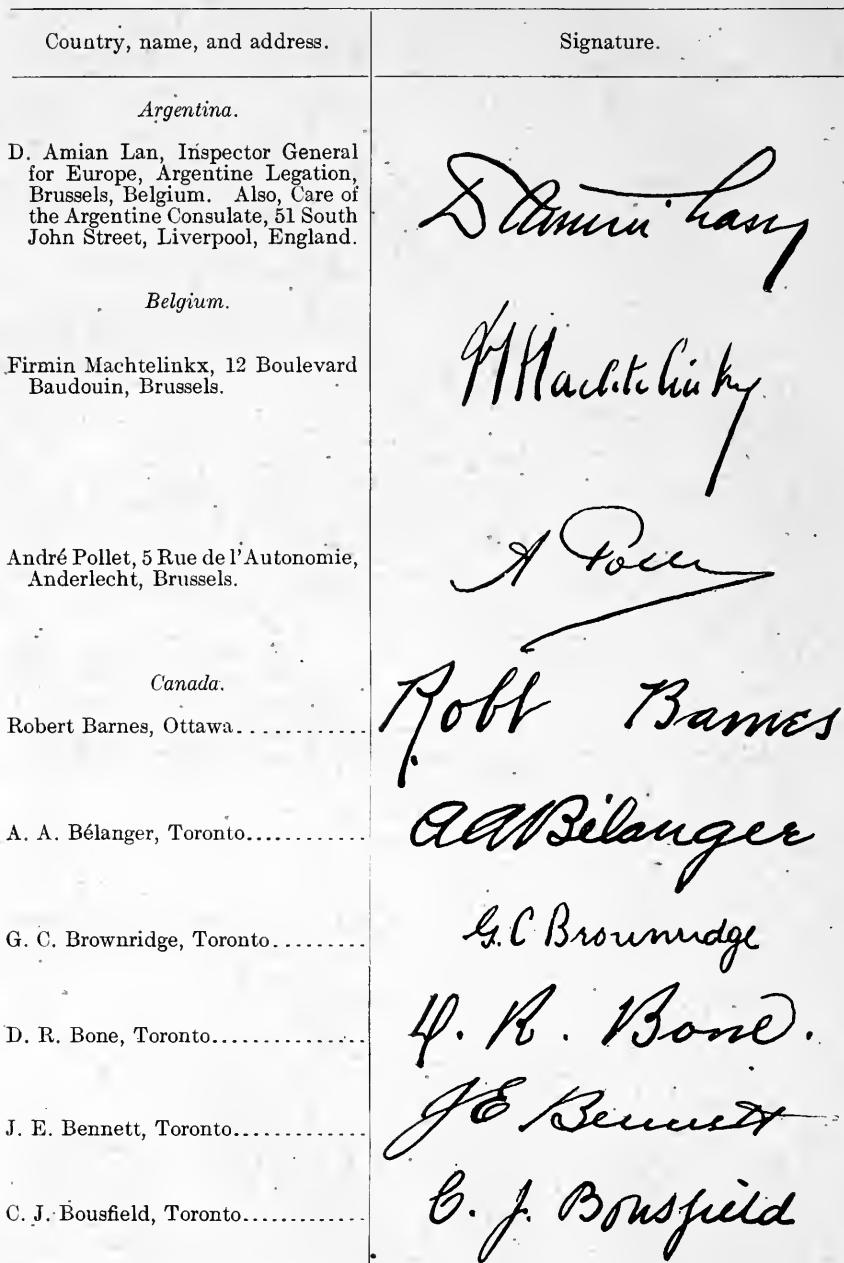 Country, name, and address.
Signature.
Argentina.
D. Amian Lan, Inspector General
for Europe, Argentine Legation,
Brussels, Belgium. Also, Care of
the Argentine Consulate, 51 South
John Street, Liverpool, England.
D Amian Lan
Belgium.
Firmin Machtelinkx, 12 Boulevard
Baudouin, Brussels.
André Pollet, 5 Rue de l'Autonomie,
Anderlecht, Brussels.
A Pollet
Canada.
Robert Barnes, Ottawa............
Robt Barnes
A. A. Bélanger, Toronto............
AABélanger
G. C. Brownridge, Toronto.........
G. C Brownridge
D. R. Bone, Toronto...............
D. R. Bone.
J. E. Bennett, Toronto.............
JE Bennett
C. J. Bousfield, Toronto............
C. J. Bousfield